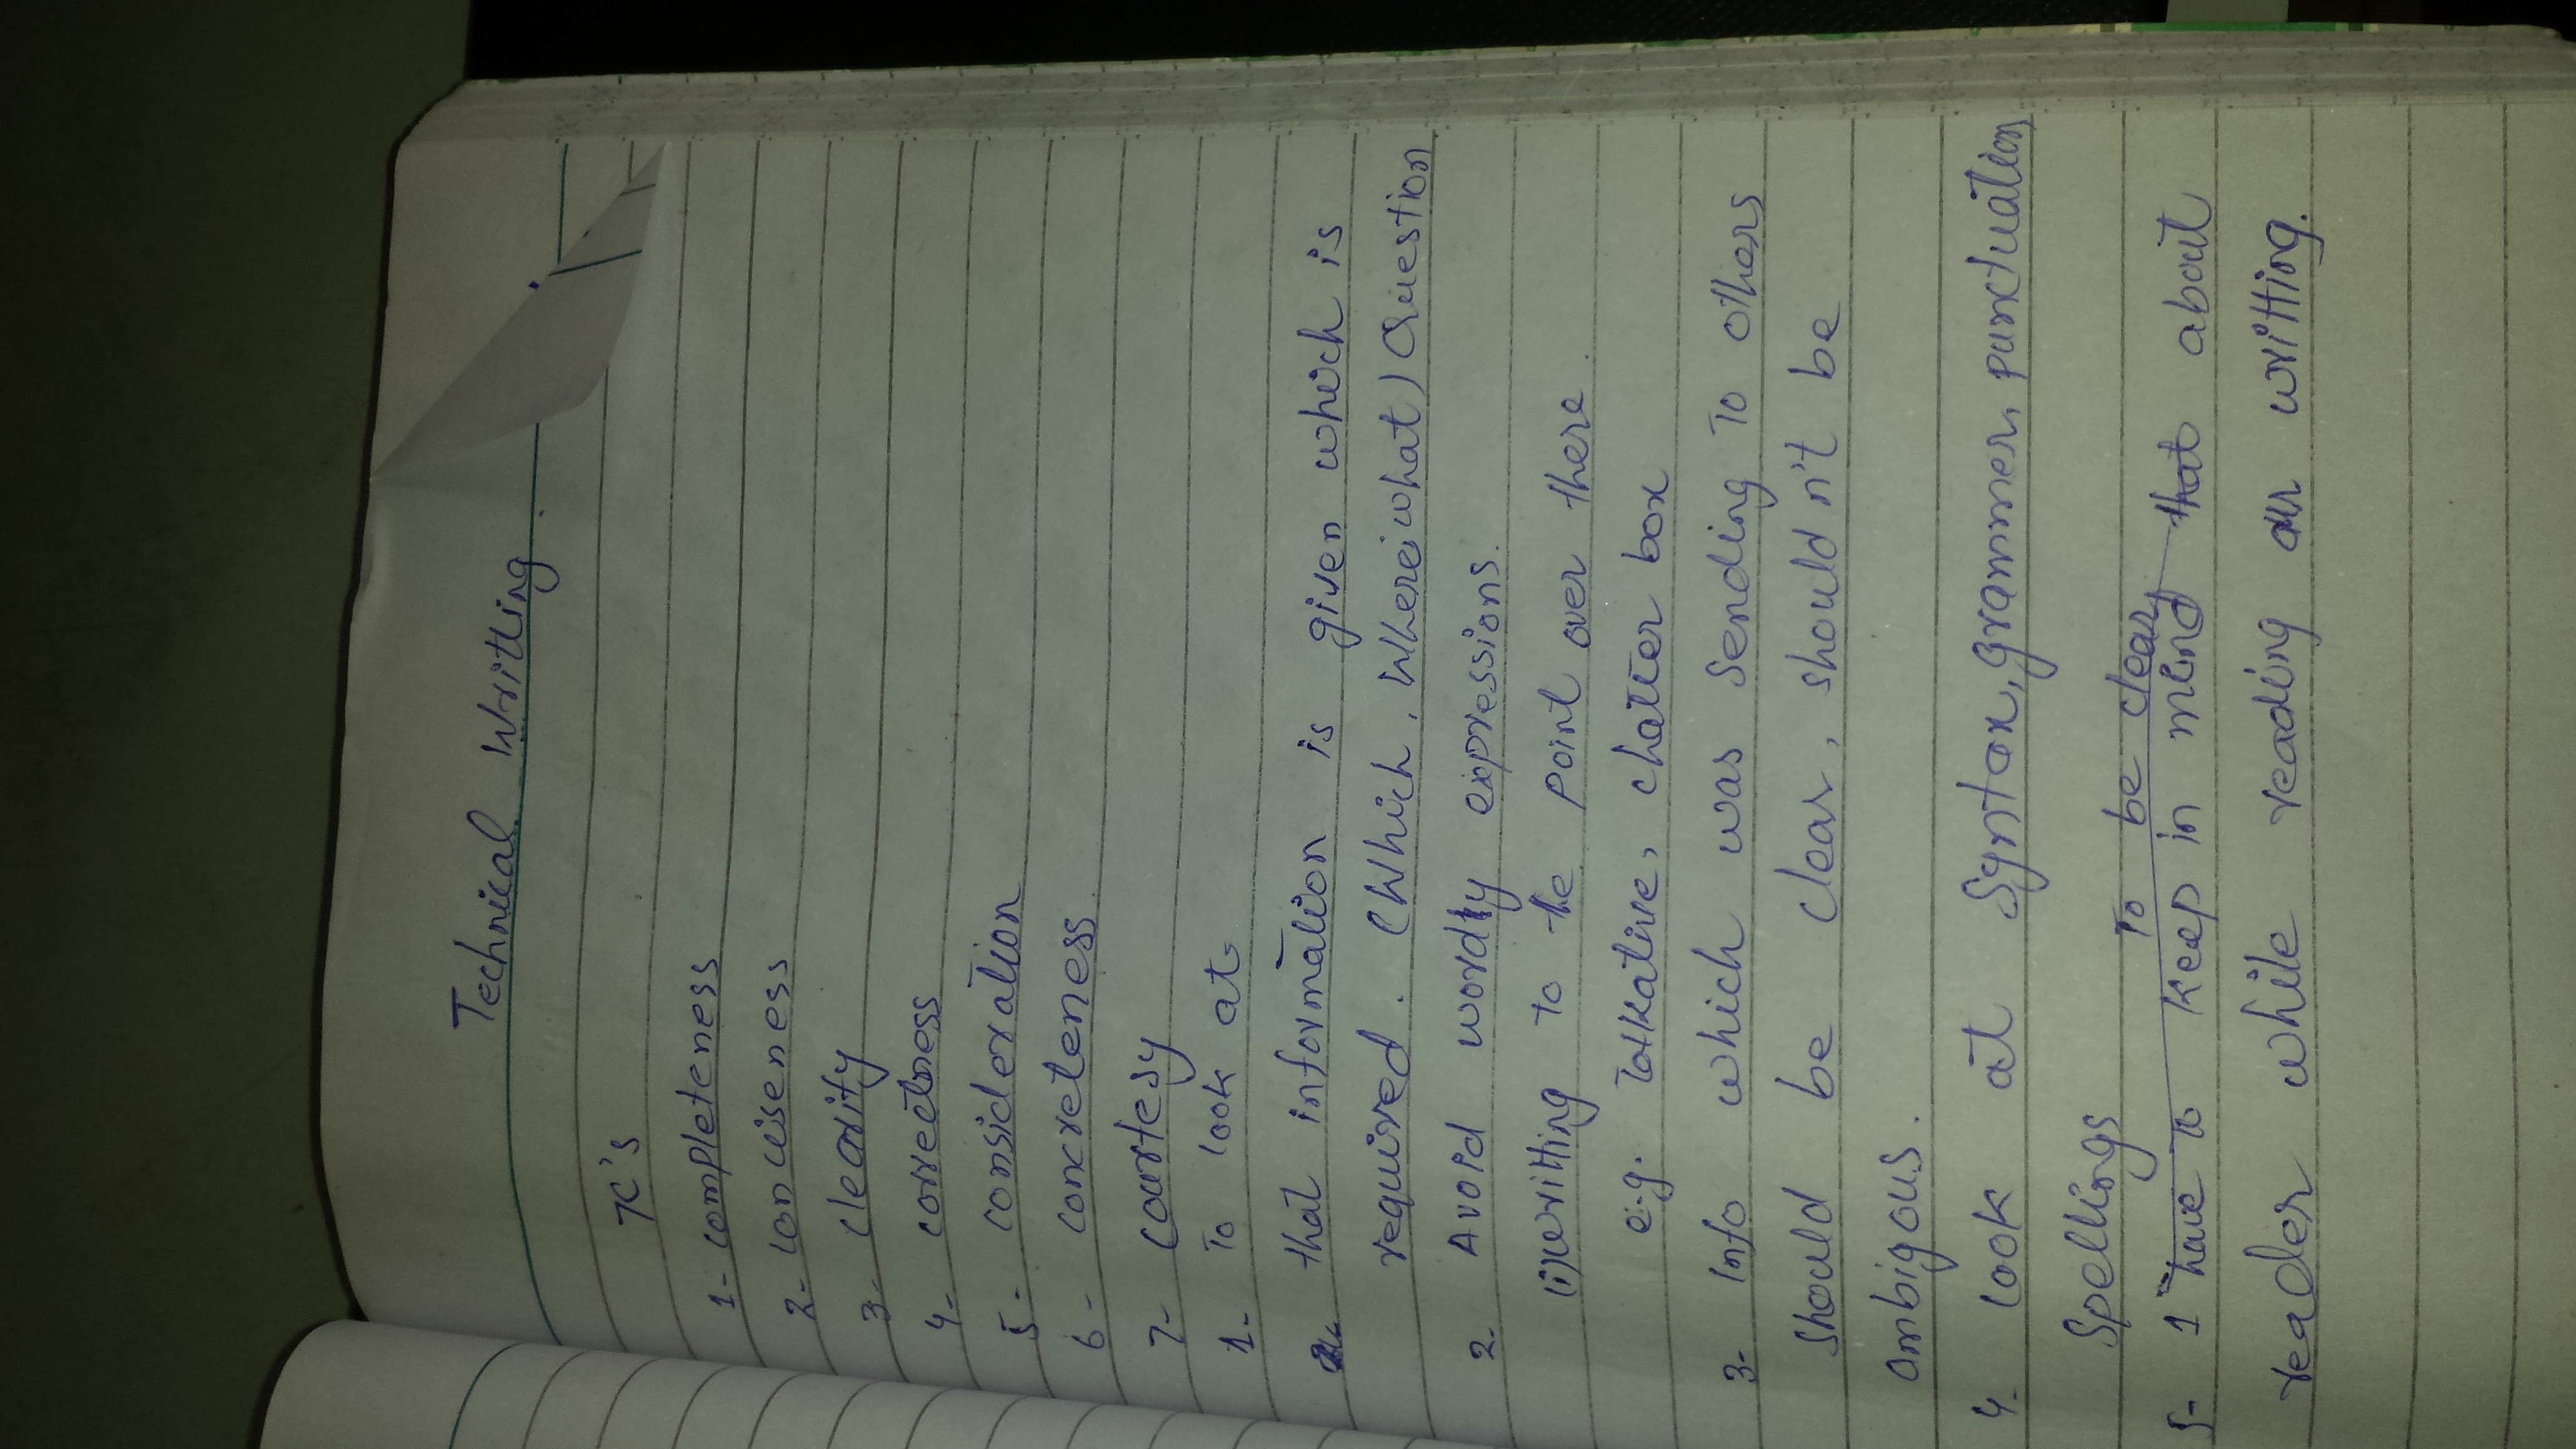 Technical Writting
7C's
1- completeness
2- conciseness
3- clearity
4- correctness
5- consideration
6- concreteness
7- courtesy
1- To look at
that information is given which is
required. (Which, Where, what) Question
2. Avoid wordly expressions.
(i) writting to the point over there.
e.g. Talkative, chatter box
3- Info which was sending To others
should be clear, shouldn't be
ambigous.
4- look at Syntax, grammer, punctuation
Spellings
To be clear,
5- I have to keep in mind that about
reader while reading our writting.